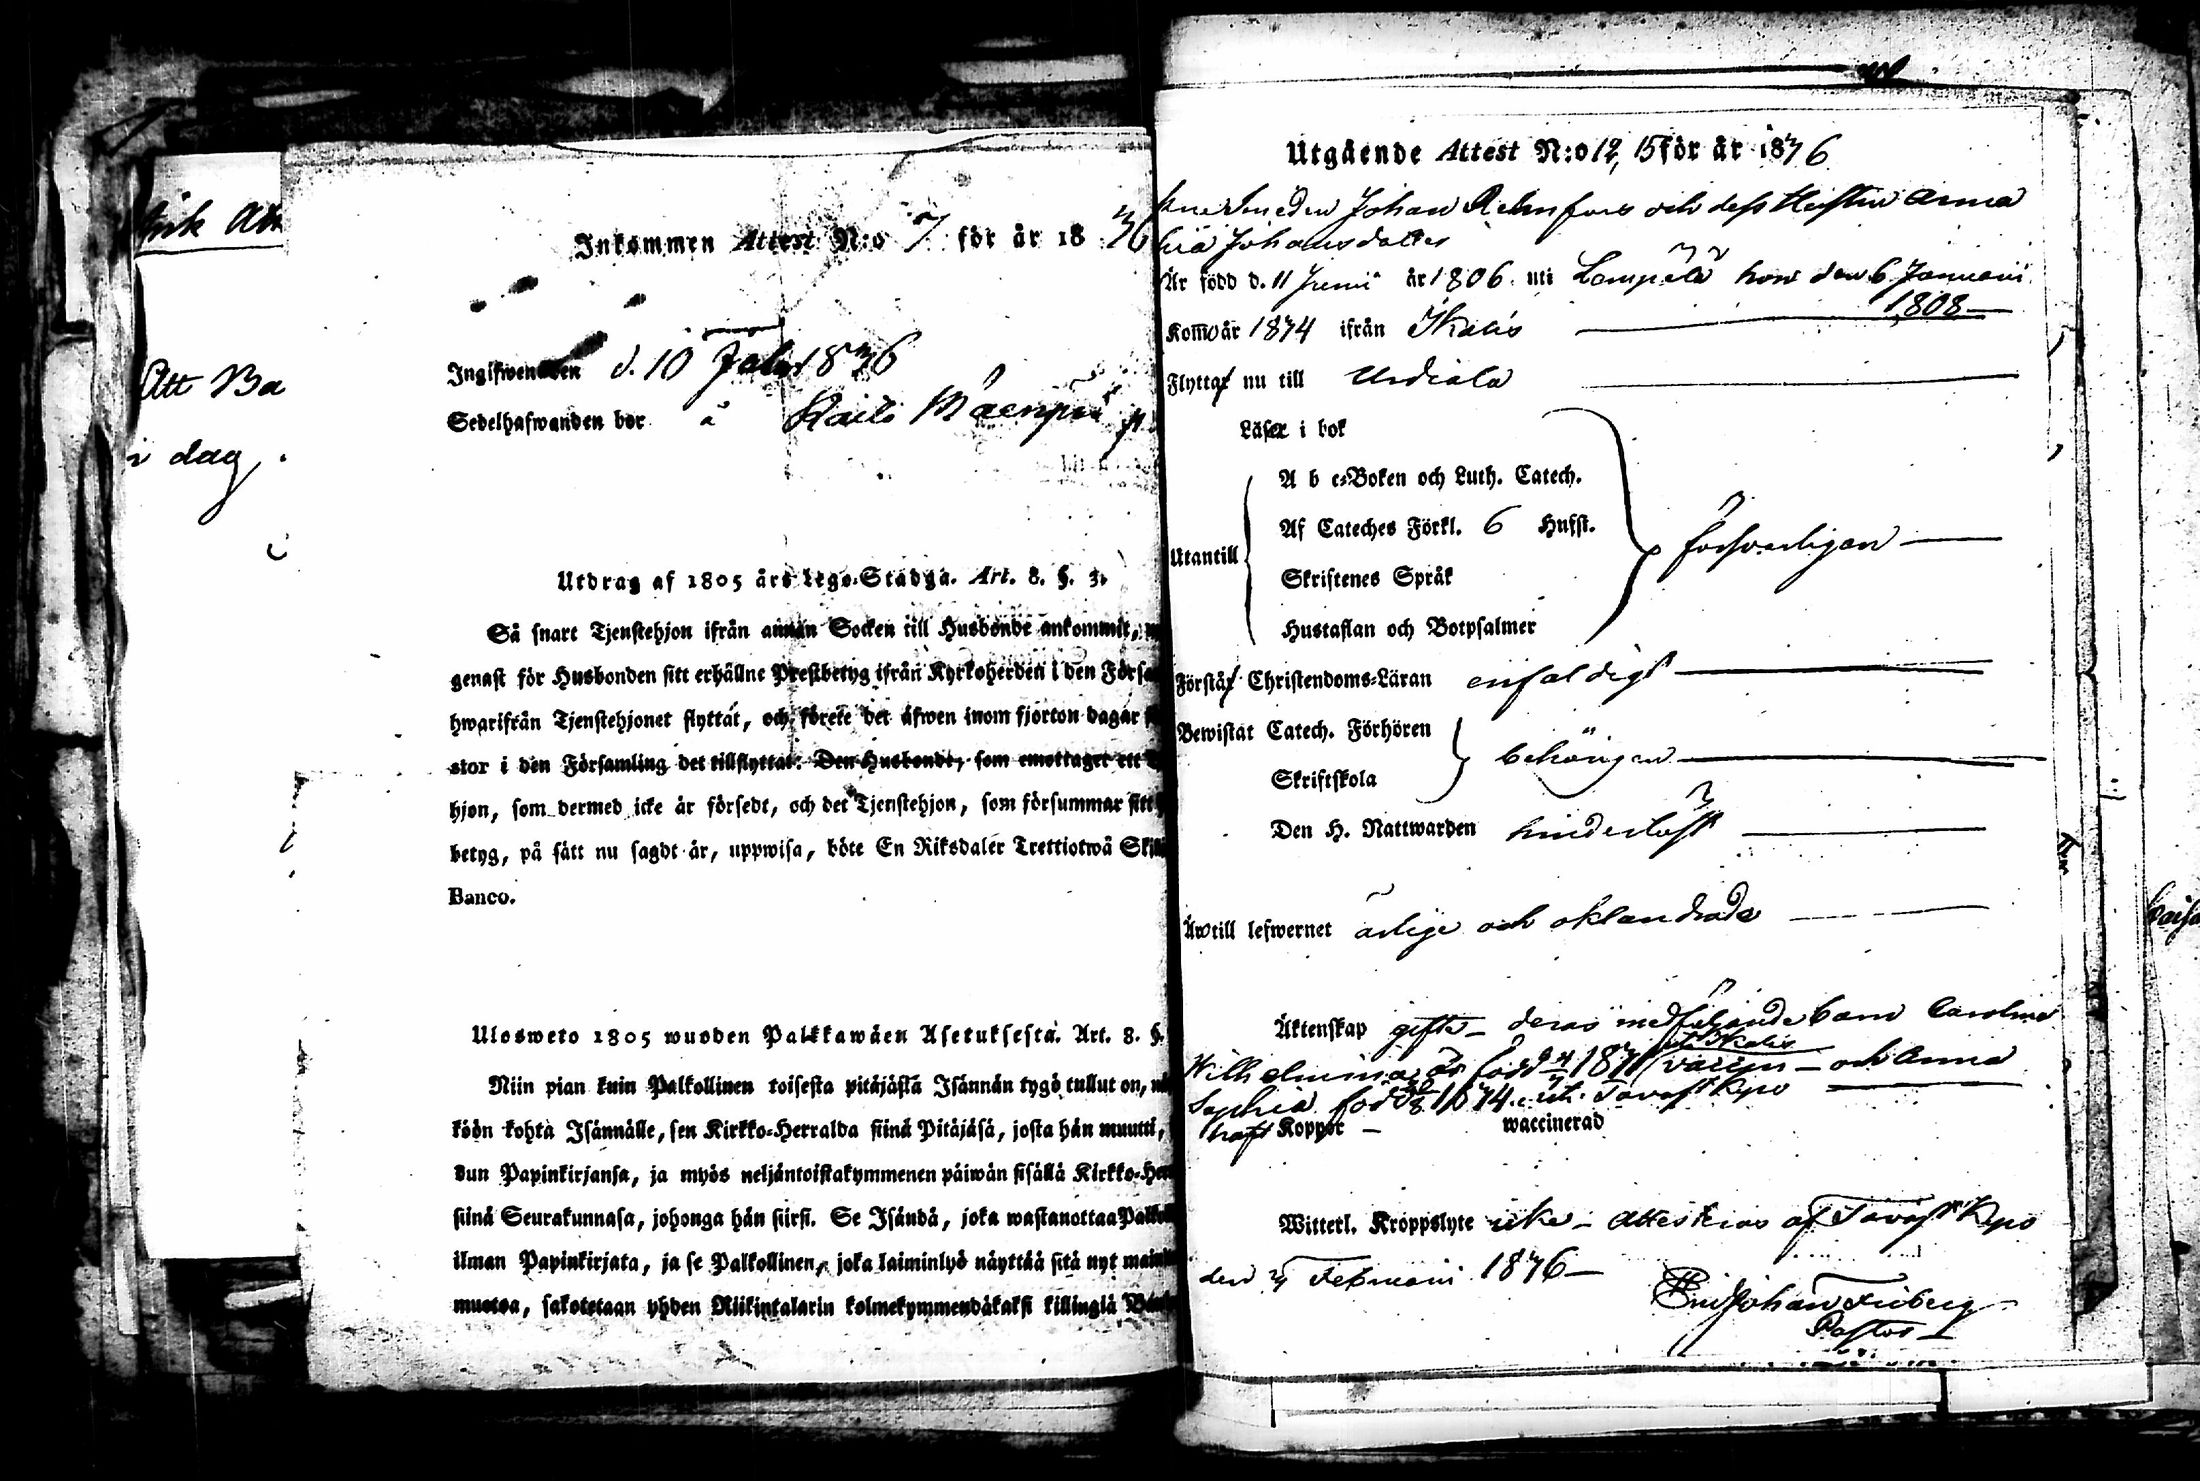 Att
Att Ba
i dag.
Inkommen Attest N:o 7 för år 1836
Ingifwen den d. 10 1836
Sedelhafwanden bor å
Utdrag af 1805 års Lego-Stadga. Art. 8. §. 3.
Så snart Tjenstehjon ifrån annan Socken till Husbonde ankommit,
genast för Husbonden sitt erhållne Prestbetyg ifrån Kyrkoherden i den Försa
hwarifrån Tjenstehjonet flyttat, och förete det äfwen inom fjorton dagar
stor i den Församling det tillflyttat. Den Husbonde, som emottager ett
hjon, som dermed icke är försedt, och det Tjenstehjon, som försummar sitt
betyg, på sätt nu sagdt är, uppwisa, böte En Riksdaler Trettiotwå Skill
Banco.
Ulosweto 1805 wuoden Palkkawäen Asetuksesta. Art. 8. §.
Niin pian kuin Palkollinen toisesta pitäjästä Isännän tygö tullut on,
köön kohta Isännälle, sen Kirkko-Herralda siinä Pitäjäsä, josta hän muutti,
dun Papinkirjansa, ja myös neljäntoistakymmenen päiwän sisällä Kirkko-Her
siinä Seurakunnasa, johonga hän siirsi. Se Isändä, joka wastanottaa Palkol
ilman Papinkirjata, ja se Palkollinen, joka laiminlyö näyttää sitä nyt main
muotoa, sakotetaan yhden Riikintalarin kolmekymmendäkaksi killingiä Ban
Utgående Attest N:o 12, 15 för år 1836
Smeden Johan och dess Hustru Anna
Johansdotter
Är född d. 11 Junii år 1806 uti Lempälä hon den 6 Januarii
1808
Kom år 1834 ifrån Ikalis
Flyttar nu till Urdiala
Läser i bok
A b c-Boken och Luth. Catech.
Af Cateches Förkl. 6 Hufst.
Utantill försvarligen
Skriftenes Språk
Hustaflan och Botpsalmer
Förstår Christendoms-Läran enfaldigt
Bewistat Catech. Förhören
behörigen
Skriftskola
Den H. Nattwarden hinderlöst
Är till lefwernet ärlige och oklandrade
Äktenskap gifte - deras medföljande barn Carolina
Ikalis
Wilhelmina är född 1831 - och Anna
Sophia född 1834 uti Tavastkyro
haft Koppor - waccinerad
Witterl. Kroppslyte icke - attesteras af Tavastkyro
den Februarii 1836 -
Johan Friberg
Pastor